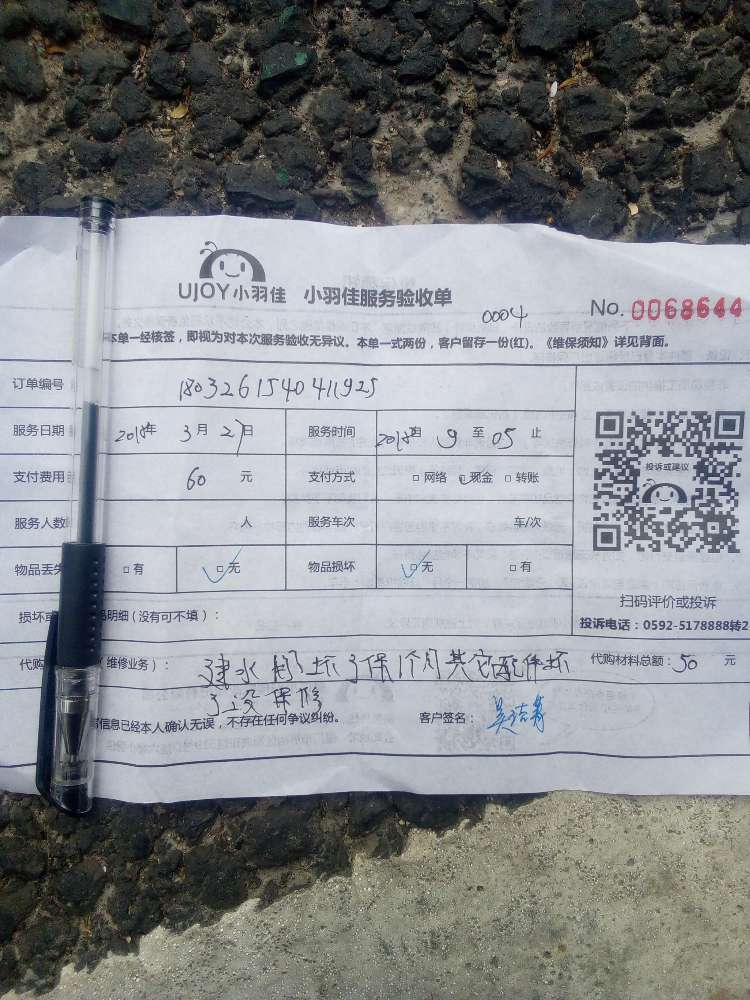 UJOY小羽佳 小羽佳服务验收单 0004 No. 0068644
本单一经核签，即视为对本次服务验收无异议。本单一式两份，客户留存一份(红)。《维保须知》详见背面。
订单编号 18032615404411925
服务日期 2018年 3月 27日 服务时间 2018自 9 至 05 止
投诉或建议
支付费用 60 元 支付方式 □网络 □现金 □转账
服务人数 人 服务车次 车/次
物品丢失 □有 □无 物品损坏 □无 □有
扫码评价或投诉
损坏或 明细（没有可不填）：
投诉电话：0592-5178888转2
代购 （维修业务）： 水 坏了保1个月其它配件坏 代购材料总额：50 元
了没保修
信息已经本人确认无误，不存在任何争议纠纷。 客户签名：